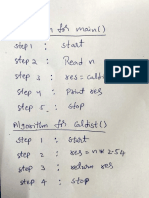 for main()
step 1 : start
step 2 : Read n
step 3 : res =
step 4 : Print res
step 5 : stop
Algorithm for Caldist()
step 1 : start
step 2 : res = n * 2.54
step 3 : return res
step 4 : stop